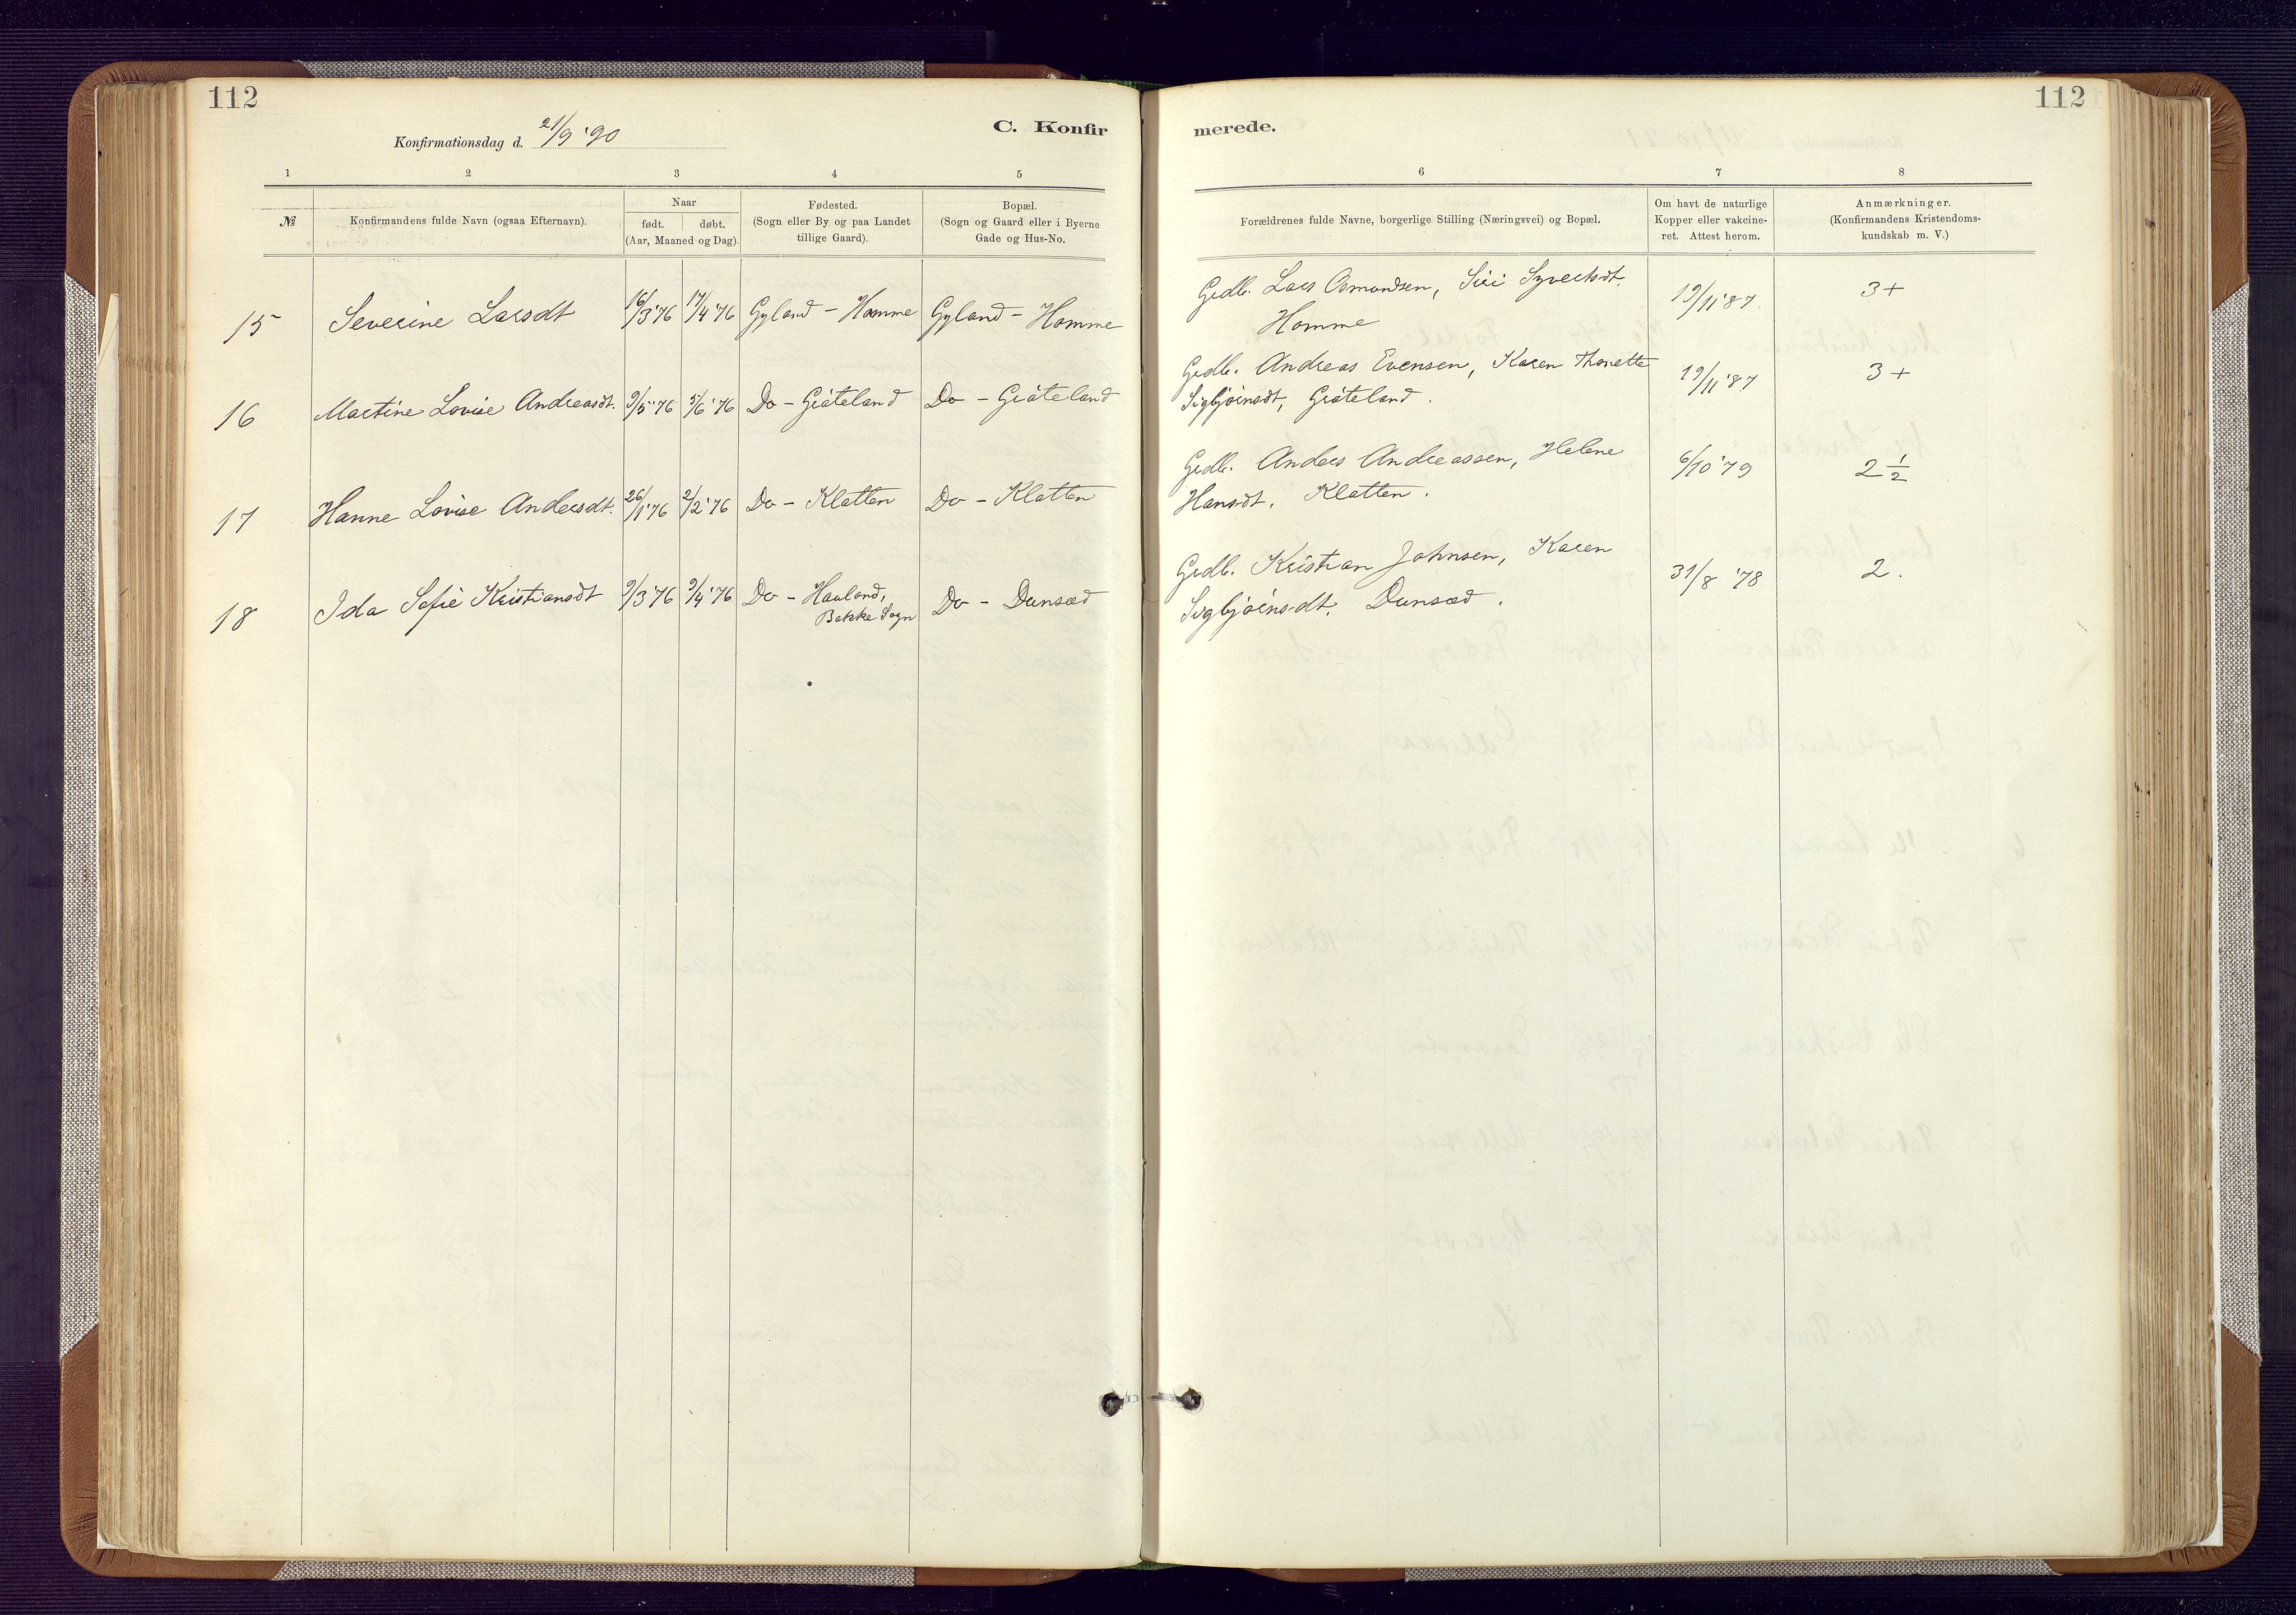 112
Konfirmationsdag d. 21/9 '90
C. Konfir
1 2 3 4 5
№
Konfirmandens fulde Navn (ogsaa Efternavn).
Naar
født. døbt.
(Aar, Maaned og Dag).
Fødested.
(Sogn eller By og paa Landet
tillige Gaard).
Bopæl.
(Sogn og Gaard eller i Byerne
Gade og Hus-No.
15 Severine Larsdt 16/3 '76 17/4 '76 Gyland - Homme Gyland - Homme
16 Martine Lovise Andreasdt. 9/5 '76 5/6 '76 Do - Gråteland Do - Gråteland
17 Hanne Lovise Andersdt. 26/1 '76 2/2 '76 Do - Kletten Do - Kletten
18 Ida Sofie Kristiansdt 9/3 '76 9/4 '76 Do - Hauland, Do - Dunsæd
Bakke Sogn
112
merede.
6 7 8
Forældrenes fulde Navne, borgerlige Stilling (Næringsvei) og Bopæl.
Om havt de naturlige
Kopper eller vakcine-
ret. Attest herom.
Anmærkninger.
(Konfirmandens Kristendoms-
kundskab m. V.)
Grdb. Lars Osmundsen, Siri Syvertsdt. 19/11 '87. 3+
Homme
Grdb. Andreas Evensen, Karen Thonette 19/11 '87 3+
Sigbjørnsdt, Gråteland.
Grdb. Anders Andreassen, Helene 6/10 '79 2 1/2
Hansdt. Kletten.
Grdb. Kristian Johnsen, Karen 31/8 '78 2.
Sigbjørnsdt. Dunsæd.